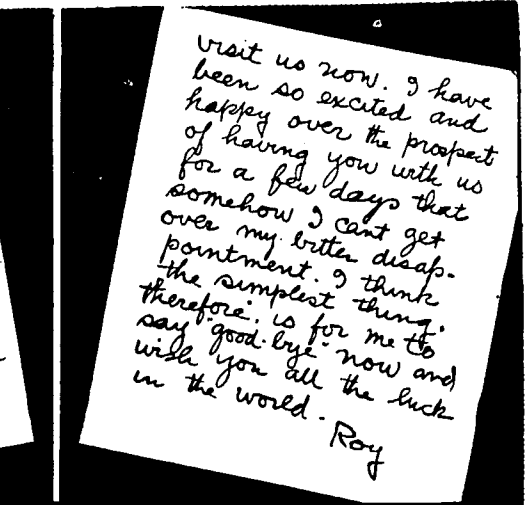 visit us now. I have
been so excited and
happy over the prospect
of having you with us
for a few days that
somehow I cant get
over my bitter disap-
pointment. I think
the simplest thing,
therefore, is for me to
say "good-bye" now and
wish you all the luck
in the world.
Roy